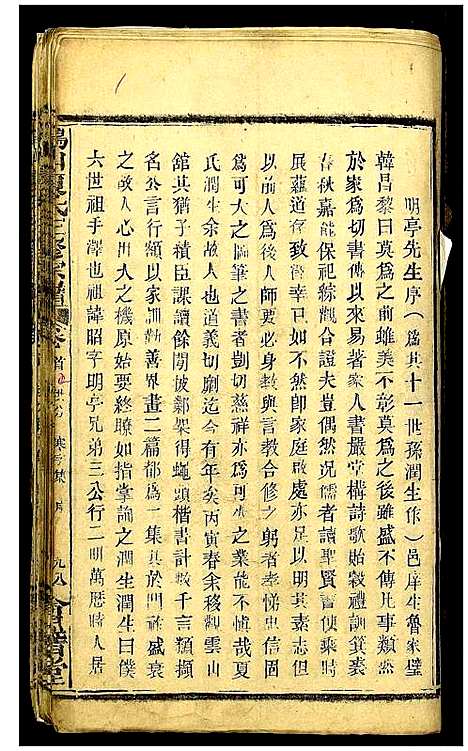 明亭先生序（為其十一世孫潤生作）邑庠生魯家璧
韓昌黎曰莫為之前雖美不彰莫為之後雖盛不傳凡事類然
於家為切書傳以來易著家人書嚴堂構詩歌貽穀禮訓箕裘
春秋嘉能保祀綜觀合證夫豈偶然况儒者讀聖賢書俠乘時
展蘊道存致徵東山不然卽家庭啟處亦足以明其素志但
以前人為後人師要必身教與言教合修之躬者孝悌忠信
為可大之圖筆之書者剴切慈祥亦為可久之業能不慨哉夏
氏潤生余故人也道義切劘迄今有年矣丙寅春余移硯雲山
舘其猶子積臣課讀餘閒披鄴架得蠅頭楷書計數千言類擬
名公言行額以家訓勸善界畫二篇都為一集具於門祚盛衰
之故人心出入之機原始要終瞭如指掌詢之潤生潤生曰僕
六世祖手澤也祖諱昭字明亭兄弟三公行二明萬曆時人居
三修宗譜
卷首
九八
會譜堂